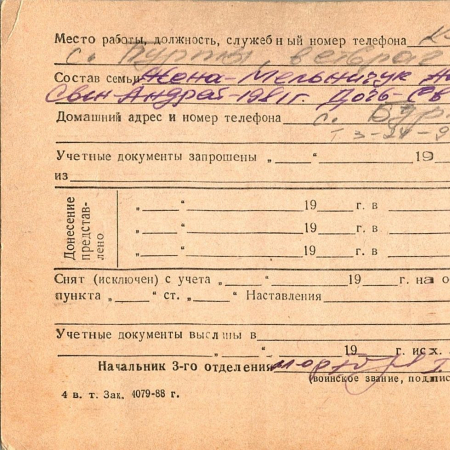 Место работы, должность, служебный номер телефона
с.
Состав семьи Жена - Мельничук
Сын Андрей - 1981г. Дочь - Св
Домашний адрес и номер телефона с.
т 3-24-9
Учетные документы запрошены „ “ 19
из
Донесение представ-лено
„ “ 19 г. в
„ “ 19 г. в
„ “ 19 г. в
Снят (исключен) с учета „ “ 19 г. на о
пункта „ “ ст. „ “ Наставления
Учетные документы высланы в
„ “ 19 г. исх.
Начальник 3-го отделения
(воинское звание, подпис
4 в. т. Зак. 4079-88 г.